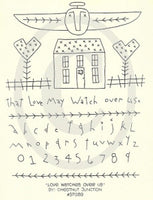 that Love May Watch over us.
a b c d e f g h i j k l
m n o p q r s t u v w x y z
0 1 2 3 4 5 6 7 8 9
"LOVE WATCHES OVER US"
BY: CHESTNUT JUNCTION